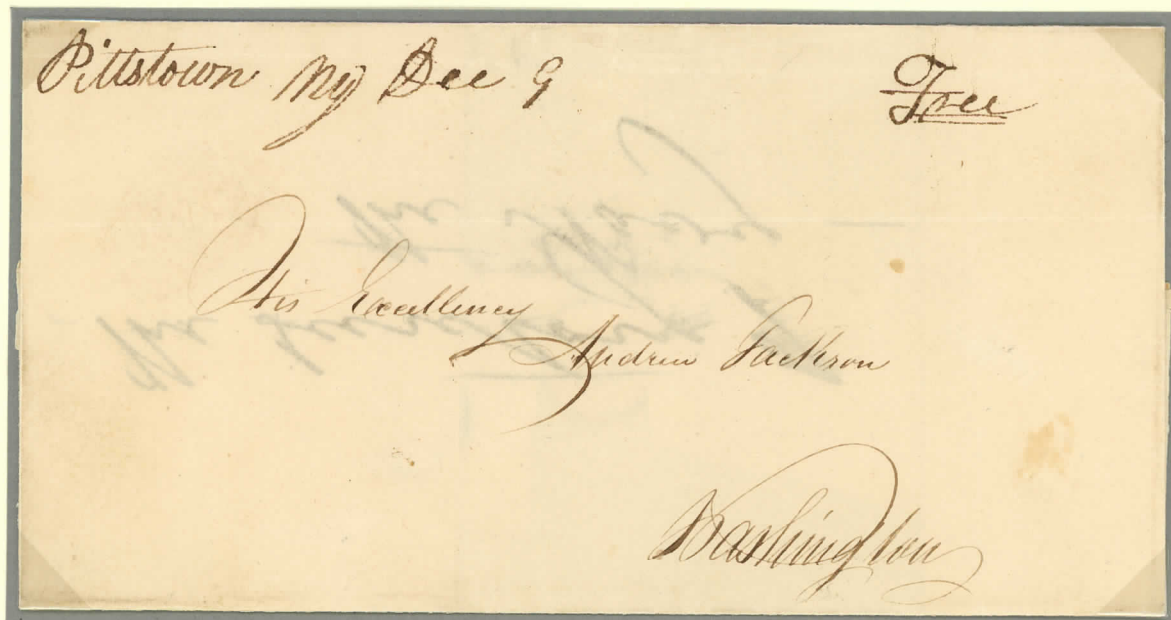 Pittstown Ny Dec 9
Free
His Excellency
Andrew Jackson
Washington